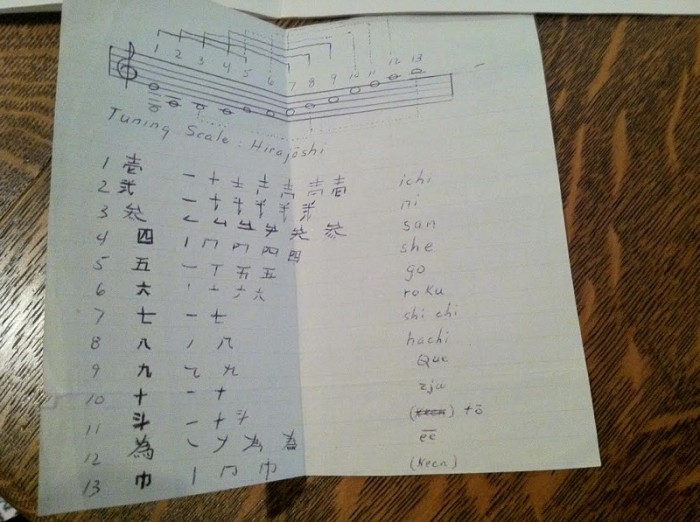 1 2 3 4 5 6 7 8 9 10 11 12 13
Tuning Scale: Hirajōshi
1 壱 一 十 士 壱 ichi
2 弐 一 弐 ni
3 参 参 san
4 四 丨 冂 四 she
5 五 一 丁 五 五 go
6 六 丶 亠 六 六 roku
7 七 一 七 shi chi
8 八 丿 八 hachi
9 九 九 Que
10 十 一 十 zju
11 斗 一 十 斗 tō
12 為 為 為 ēē
13 巾 丨 冂 巾 (Keen)